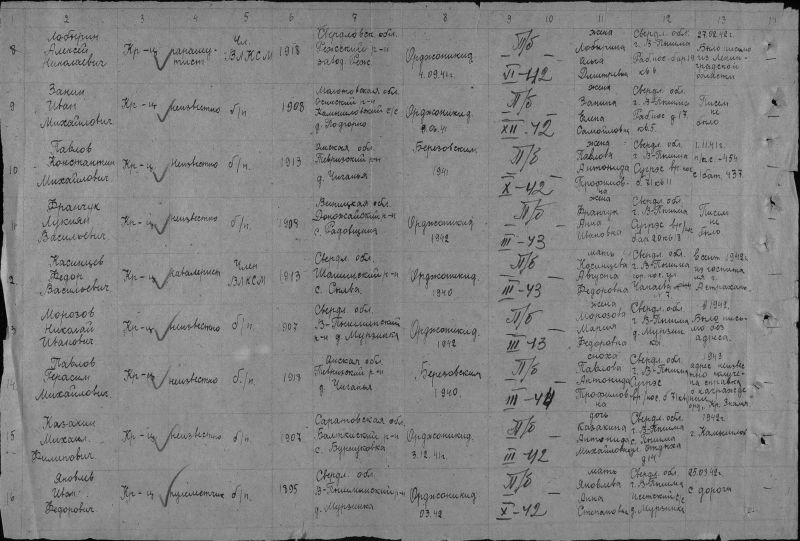 1 2 3 4 5 6 7 8 9 10 11 12 13 14
8 Лобырин Алексей Николаевич Кр-ц парашютист Чл. ВЛКСМ 1918 Свердловск. обл. Режевский р-н завод. Реж Орджоникид. 4.09.41г. П/б VI-42 жена Лобырина Ольга Дмитриевна Свердл. обл. г. В-Пышма Рабпос. кв 6 27.02.42г. Было письмо из Ленинградской области
9 Занин Иван Михайлович Кр-ц неизвестно б/п 1908 Молотовская обл. д. Подгорно Орджоникид. П/б XII-42 жена Занина Елена Самойловна Свердл. обл. г. В-Пышма Рабпос д. 17 кв 5. Писем не было
10 Павлов Константин Михайлович Кр-ц неизвестно б/п. 1913 Омская обл. Тевризский р-н д. Чиганья Березовским 1941 П/б X-42 жена Павлова Антонида Трофимовна Свердл. обл. г. В-Пышма 1.11.41г. п/п.с -454 с/бат. 437
11 Франчук Лукиян Васильевич Кр-ц неизвестно б/п. 1908 Виницкая обл. р-н с. Садовщина Орджоникид 1942 П/б III-43 жена Франчук Анна Ивановна Свердл. обл. г. В-Пышма Писем не было
2 Косинцев Федор Васильевич Кр-ц кавалерист Член ВЛКСМ 1913 Свердл. обл. Шалинский р-н с. Сылва Орджоникид. 1940 П/б III-43 мать Косинцева Августа Федоровна Свердл. обл. г. В-Пышма Чапаева № 7. в сент. 1942г. из госпиталя г. Астрахань
3 Морозов Николай Иванович Кр-ц неизвестно б/п. 1907 Свердл. обл. В-Пышминский р-н д. Мурзинка Орджоникид. 1942 П/б III-43 жена Морозова Мария Федоровна Свердл. обл. г. В-Пышма д. Мурзинка в 1942. Было письмо без адреса.
14 Павлов Герасим Михайлович Кр-ц неизвестно б/п. 1918 Омская обл. Тевризский р-н д. Чиганья Березовским 1940. П/б III-44 сноха Павлова Антонида Трофимовна Свердл. обл. г. В-Пышма 1943 адрес неизвес получена справка о награжде орд. Кр. Знамя
15 Казакин Михаил Филипович Кр-ц неизвестно б/п. 1907 Саратовская обл. р-н Орджоникид. 3.12.41г. П/б III-42 дочь Казакина Антонида Михайловна Свердл. обл. г. В-Пышма ул. отдыха д 14 1942г. г. Камышлов
16 Яковлев Иван Федорович Кр-ц б/п 1895 Свердл. обл. В-Пышминский р-н д. Мурзинка Орджоникид 03.42 П/б X-42 мать Яковлева Анна Степановна Свердл. обл. г. В-Пышма д. Мурзинка 25.03.42г. с дороги